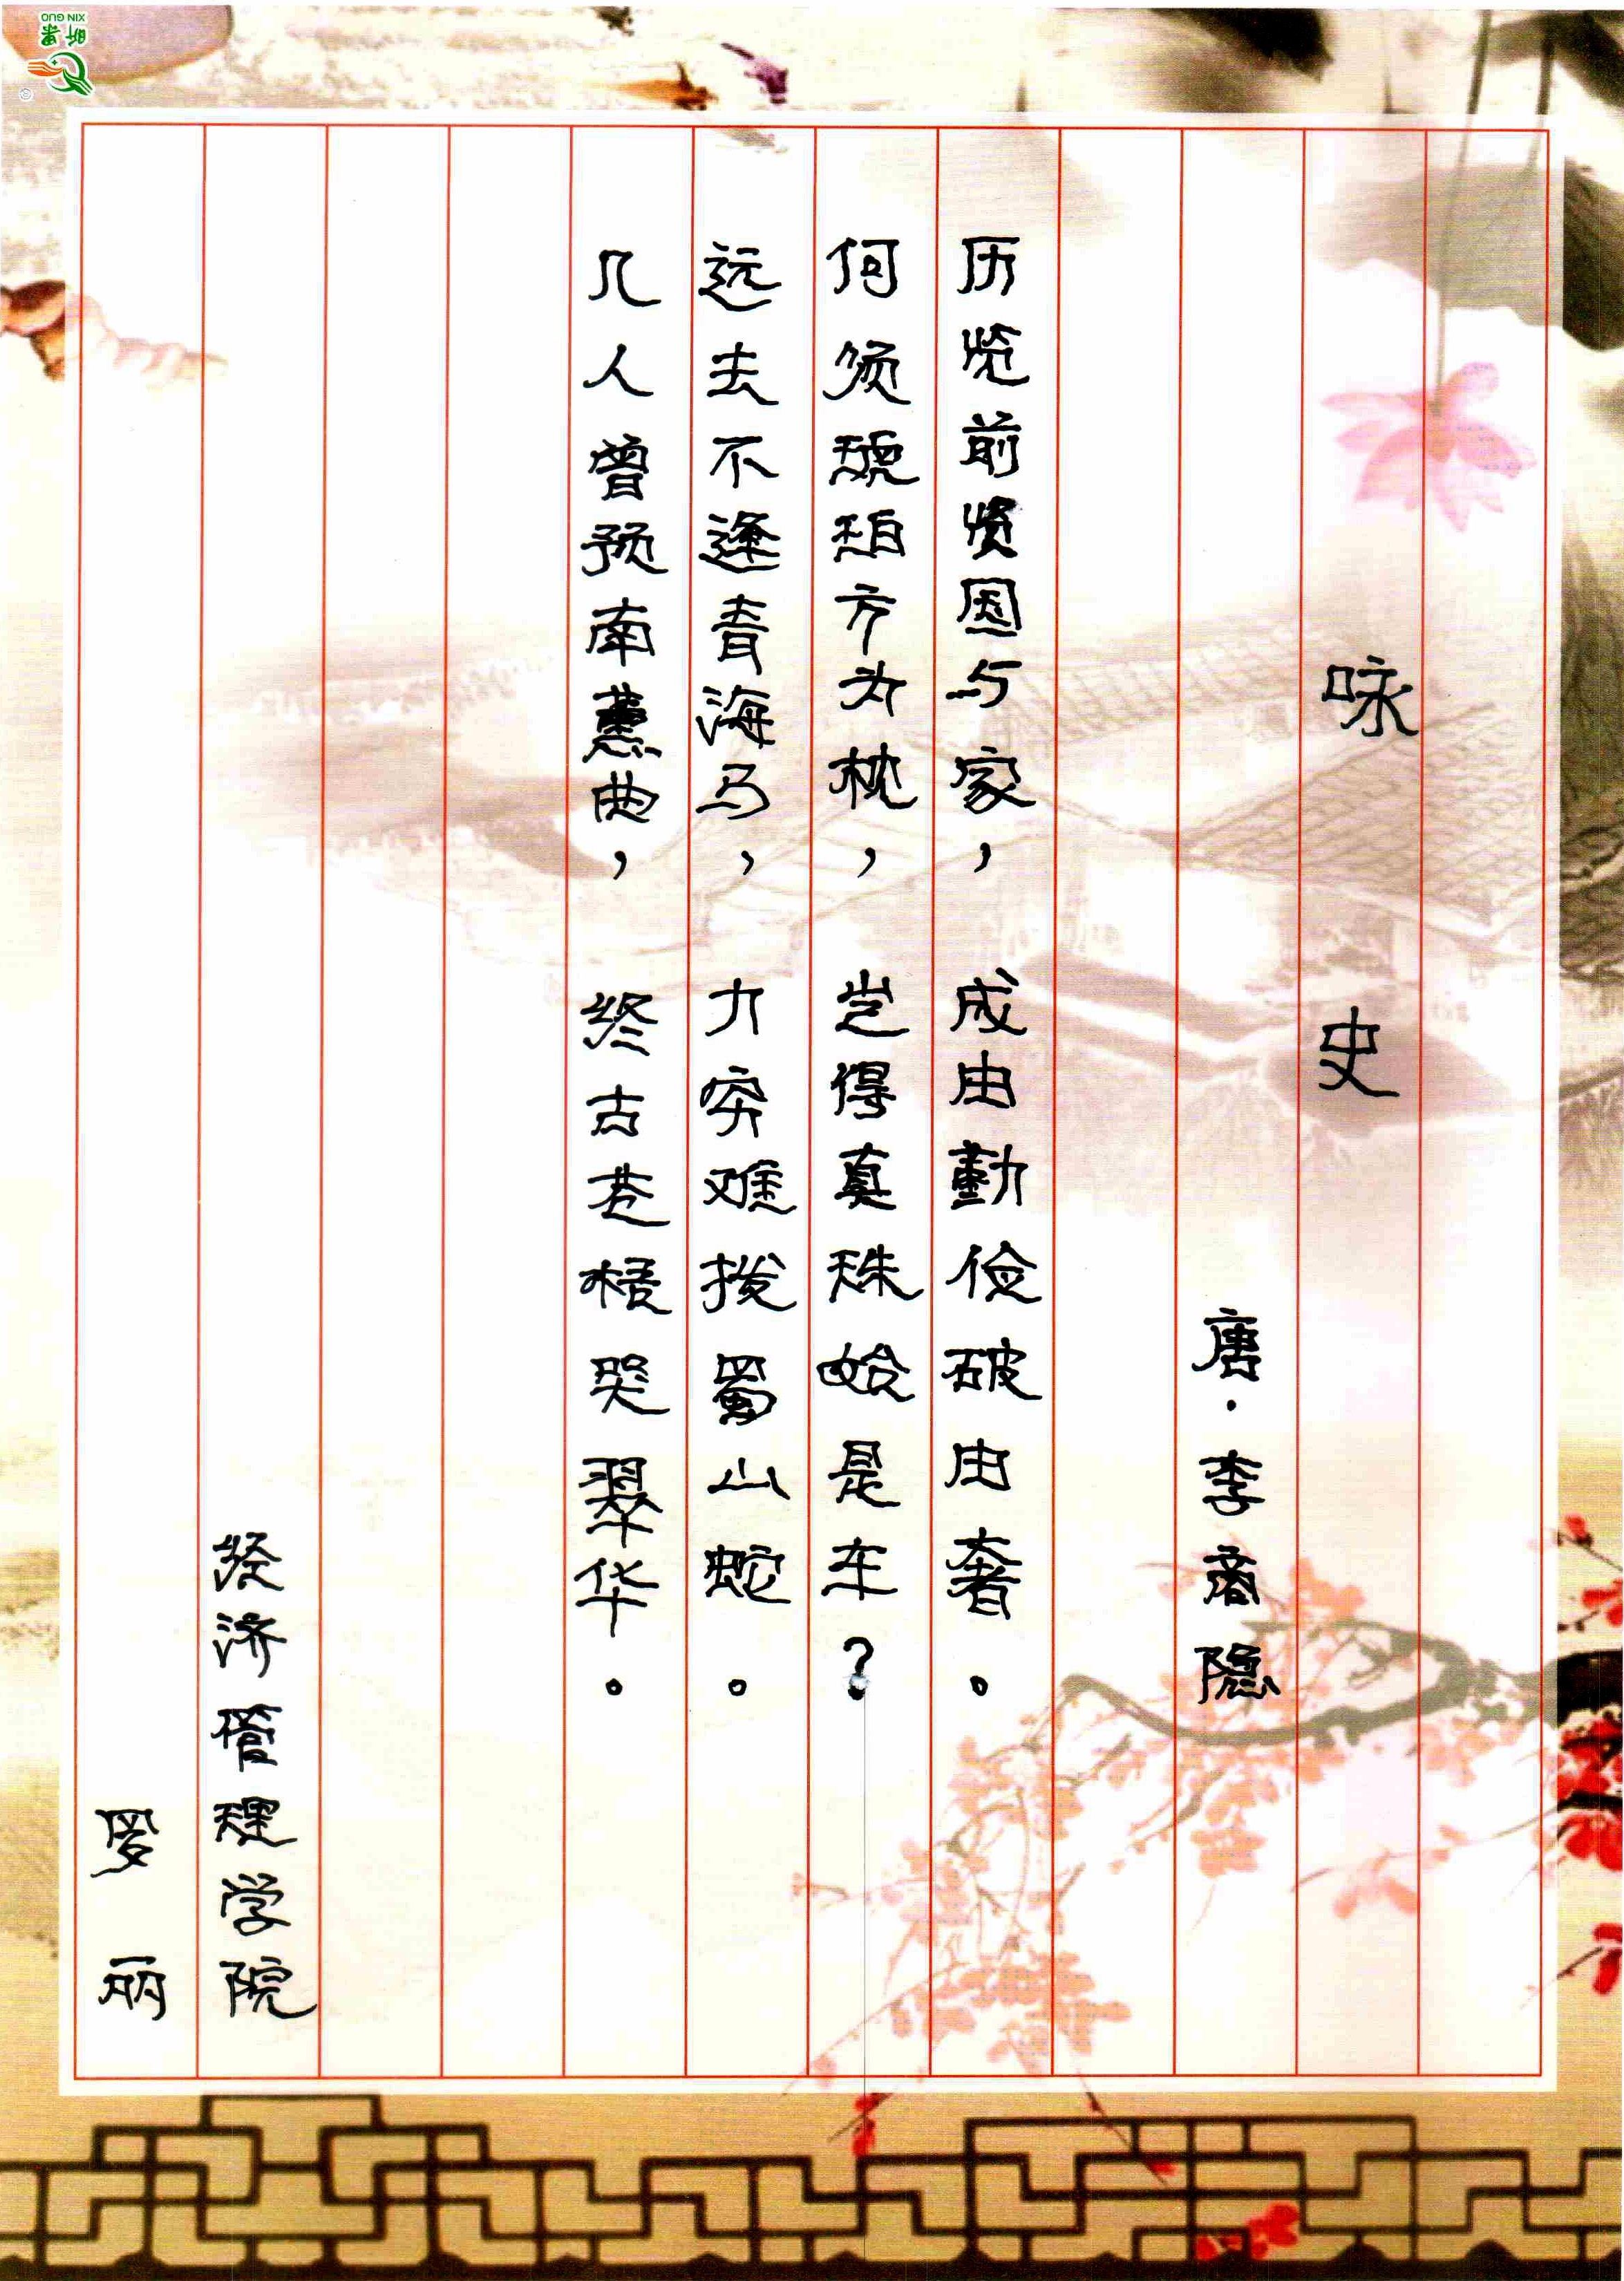 咏史
唐·李商隐
历览前贤国与家，成由勤俭破由奢。
何须琥珀方为枕，岂得真珠始是车？
远去不逢青海马，力穷难拨蜀山蛇。
几人曾预南薰曲，终古苍梧哭翠华。
经济管理学院
罗丽
XIN GUO